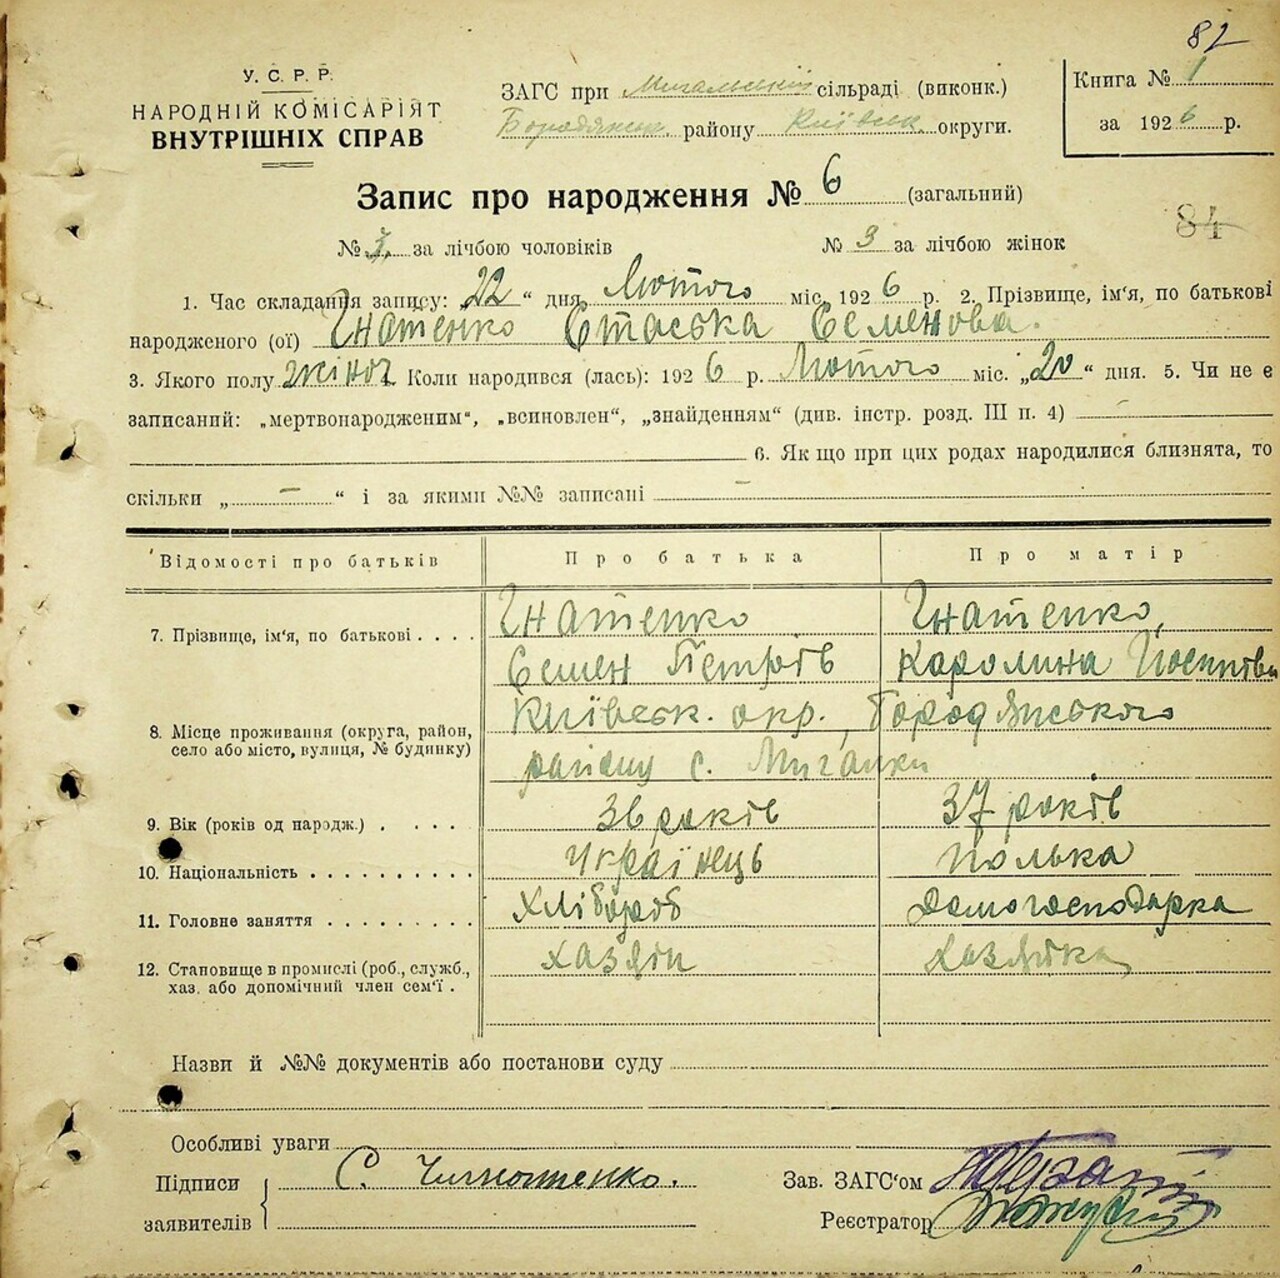 82
У. С. Р. Р.
НАРОДНІЙ КОМІСАРІЯТ
ВНУТРІШНІХ СПРАВ
ЗАГС при Мигальській сільраді (виконк.)
Бородянськ. району Київськ. округи.
Книга № 1
за 1926 р.
Запис про народження № 6 (загальний)
84
№ за лічбою чоловіків № 3 за лічбою жінок
1. Час складання запису: „22“ дня Лютого міс. 1926 р. 2. Прізвище, ім'я, по батькові
народженого (ої) Гнатенко Стаська Семенова.
3. Якого полу жіноч. Коли народився (лась): 1926 р. Лютого міс. „20“ дня. 5. Чи не є
записаний: „мертвонародженим“, „всиновлен“, „знайденням“ (див. інстр. розд. III п. 4) –
6. Як що при цих родах народилися близнята, то
скільки „ – “ і за якими №№ записані –
Відомості про батьків Про батька Про матір
7. Прізвище, ім'я, по батькові . . . . Гнатенко Гнатенко,
Семен Петрів Каролина Йосипівн
8. Місце проживання (округа, район, село або місто, вулиця, № будинку) Київськ. окр., Бородянського
району с. Мигалки
9. Вік (років од народж.) . . . . 36 років 37 років
10. Національність . . . . . . . . . . Українець Полька
11. Головне заняття . . . . . . . . . Хлібороб Домогосподарка
12. Становище в промислі (роб., служб., Хазяїн Хазяйка
хаз. або допомічний член сем'ї .
Назви й №№ документів або постанови суду
Особливі уваги
Підписи С. Зав. ЗАГС'ом
заявителів Реєстратор